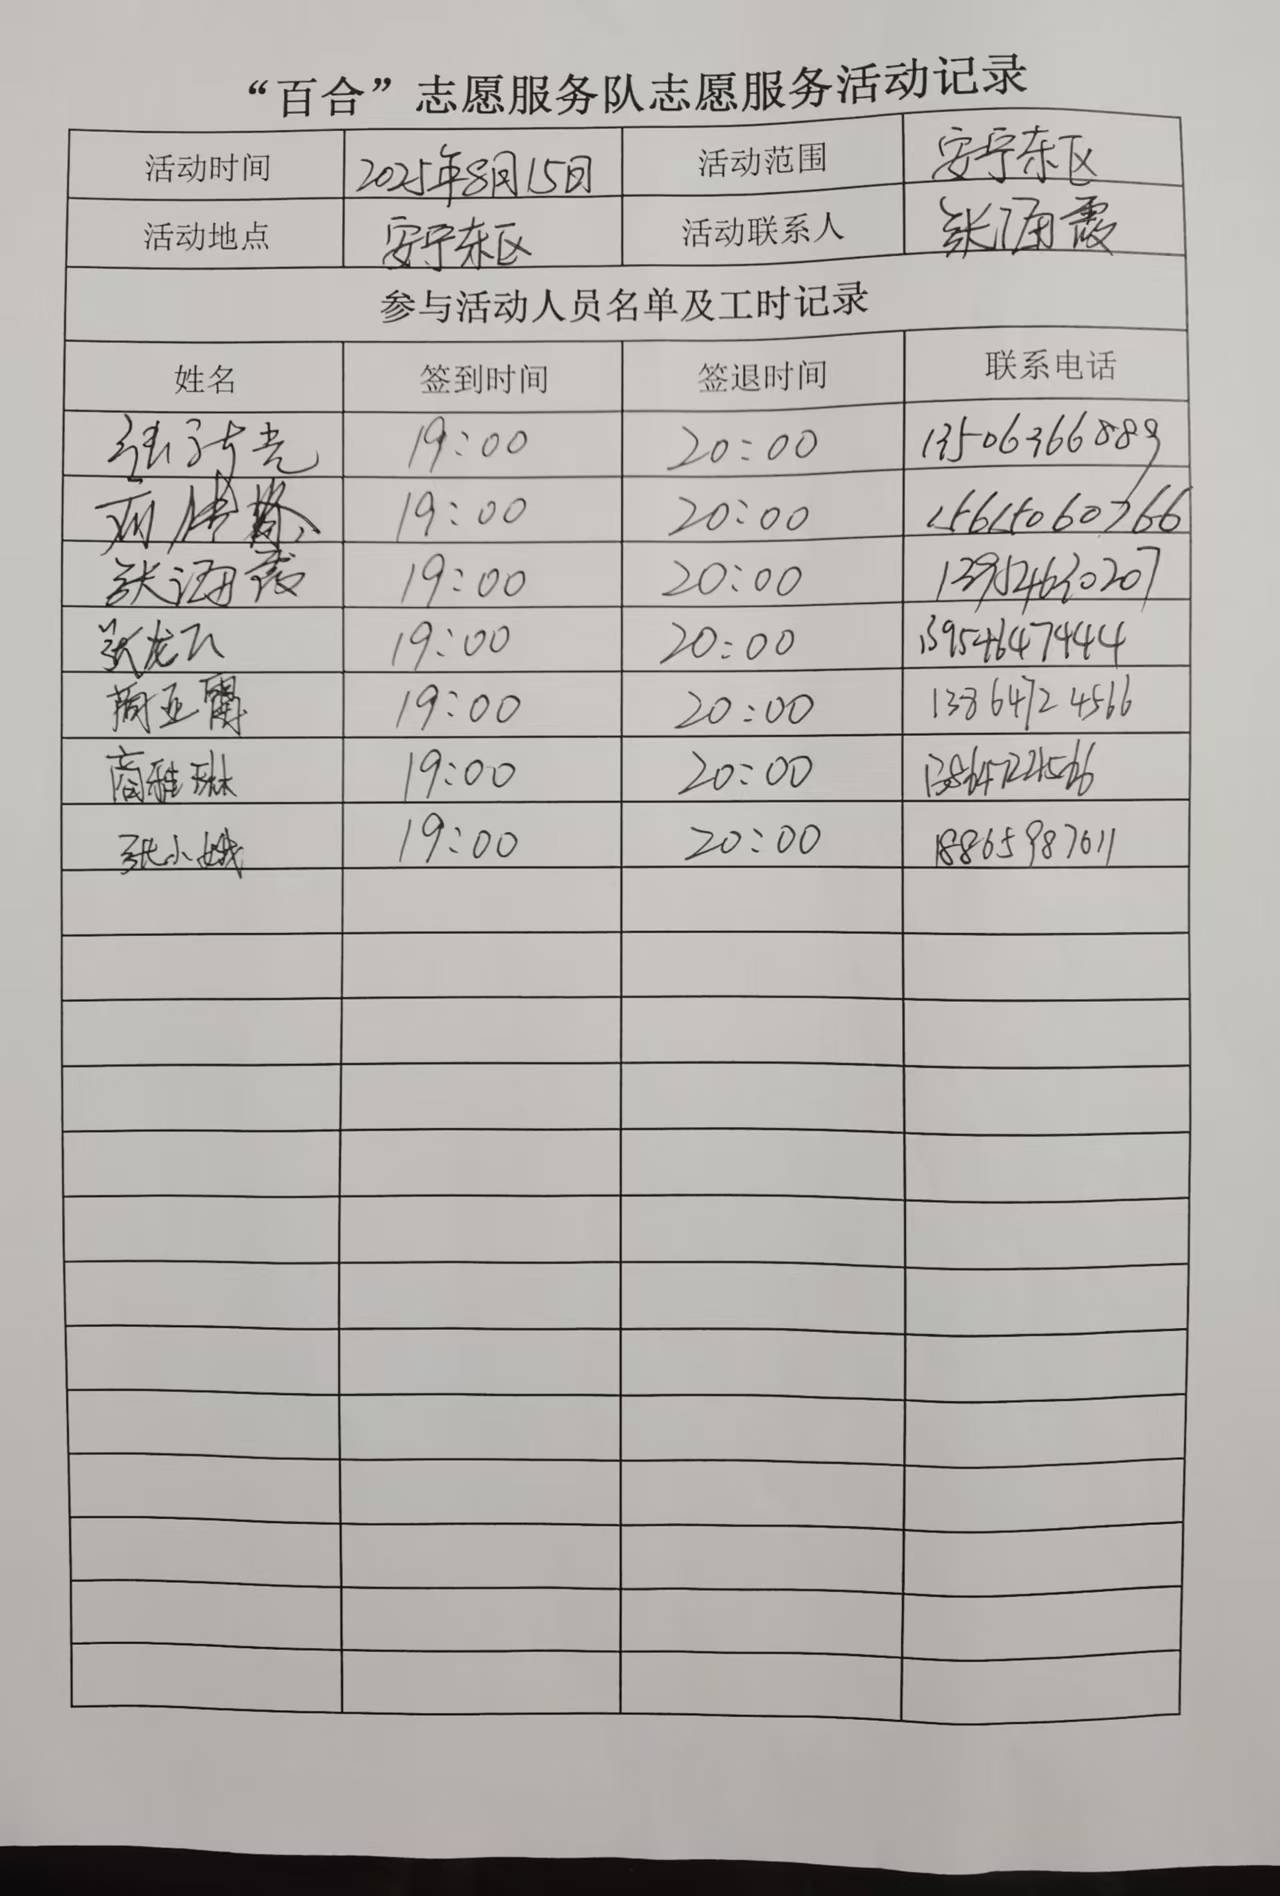 “百合”志愿服务队志愿服务活动记录
活动时间 2025年8月15日 活动范围 安宁东区
活动地点 安宁东区 活动联系人 张海霞
参与活动人员名单及工时记录
姓名 签到时间 签退时间 联系电话
19:00 20:00 13506366889
19:00 20:00 15615060766
张海霞 19:00 20:00 13954630207
张龙飞 19:00 20:00 13954647444
商亚 19:00 20:00 13864724566
商雅琳 19:00 20:00 13864724566
张小娥 19:00 20:00 18865987611